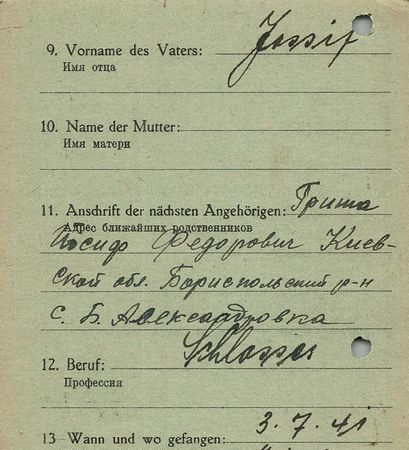 9. Vorname des Vaters: Jossif
Имя отца
10. Name der Mutter:
Имя матери
11. Anschrift der nächsten Angehörigen: Гриша
Адрес ближайших родственников
Иосиф Федорович Киев-
ской обл. Бориспольский р-н
с. Б. Александровка
Schlosser
12. Beruf:
Профессия
3. 7. 41
13 Wann und wo gefangen: